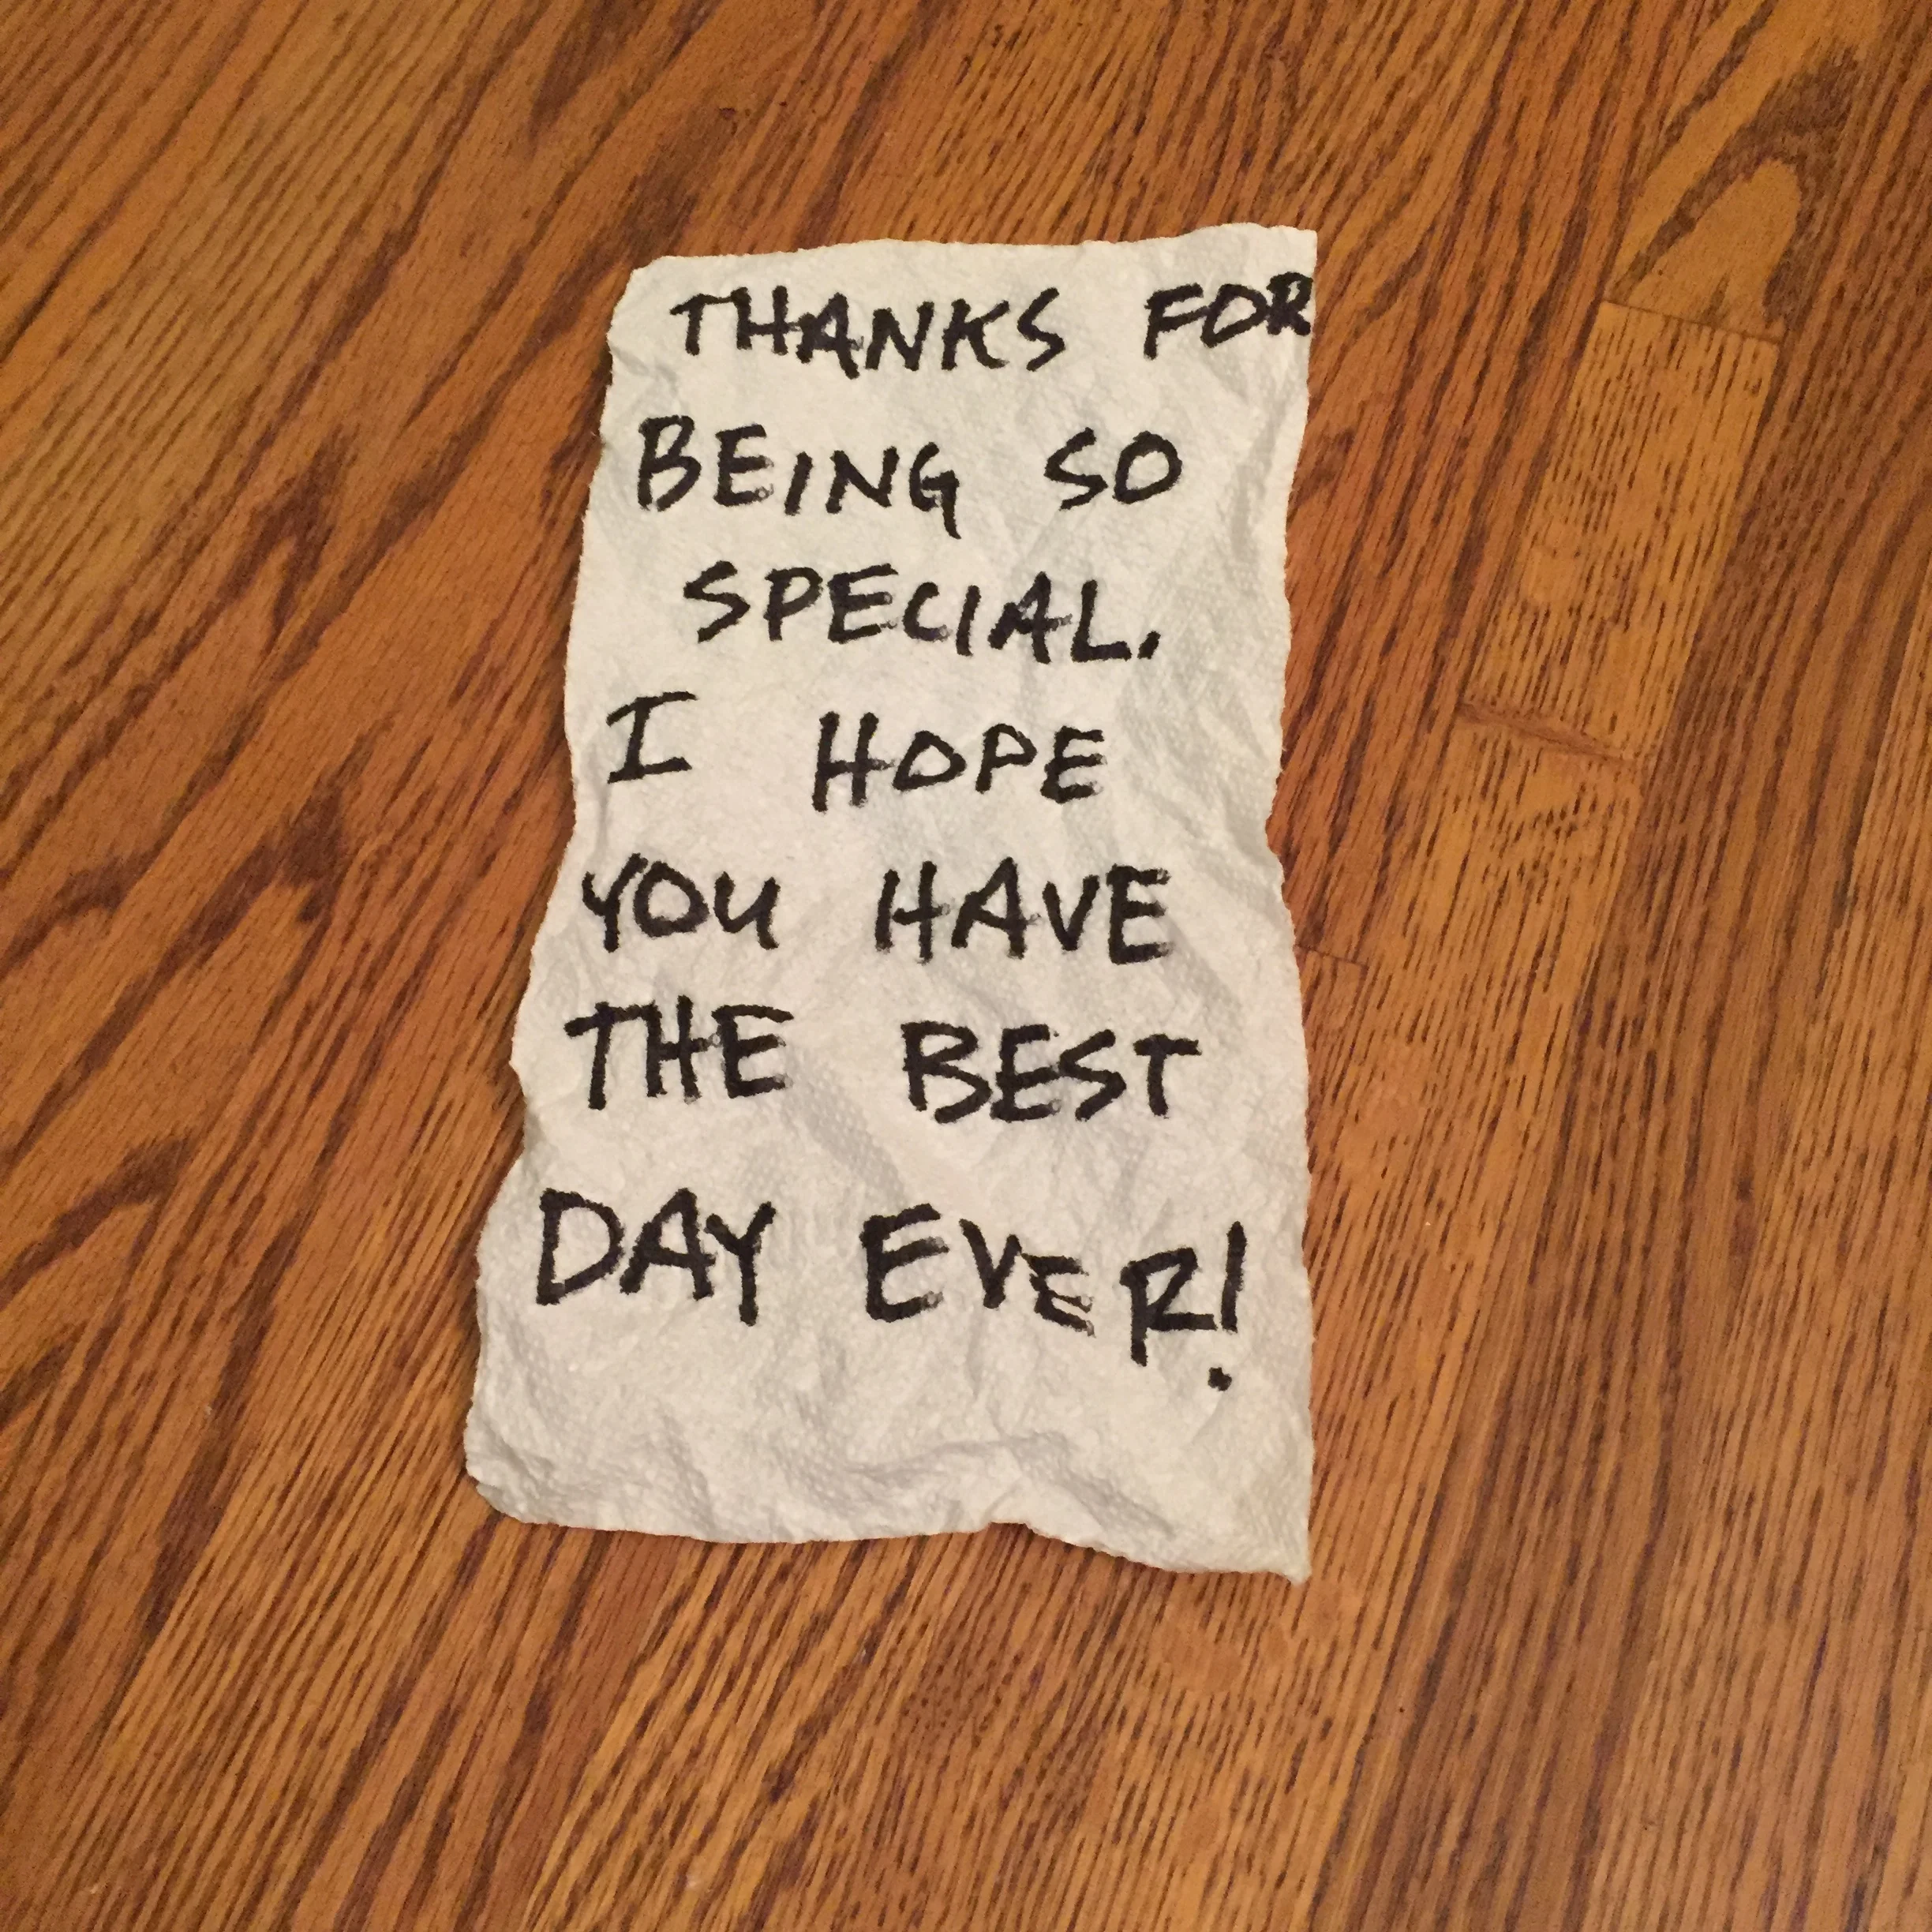 THANKS FOR
BEING SO
SPECIAL.
I HOPE
YOU HAVE
THE BEST
DAY EVER!